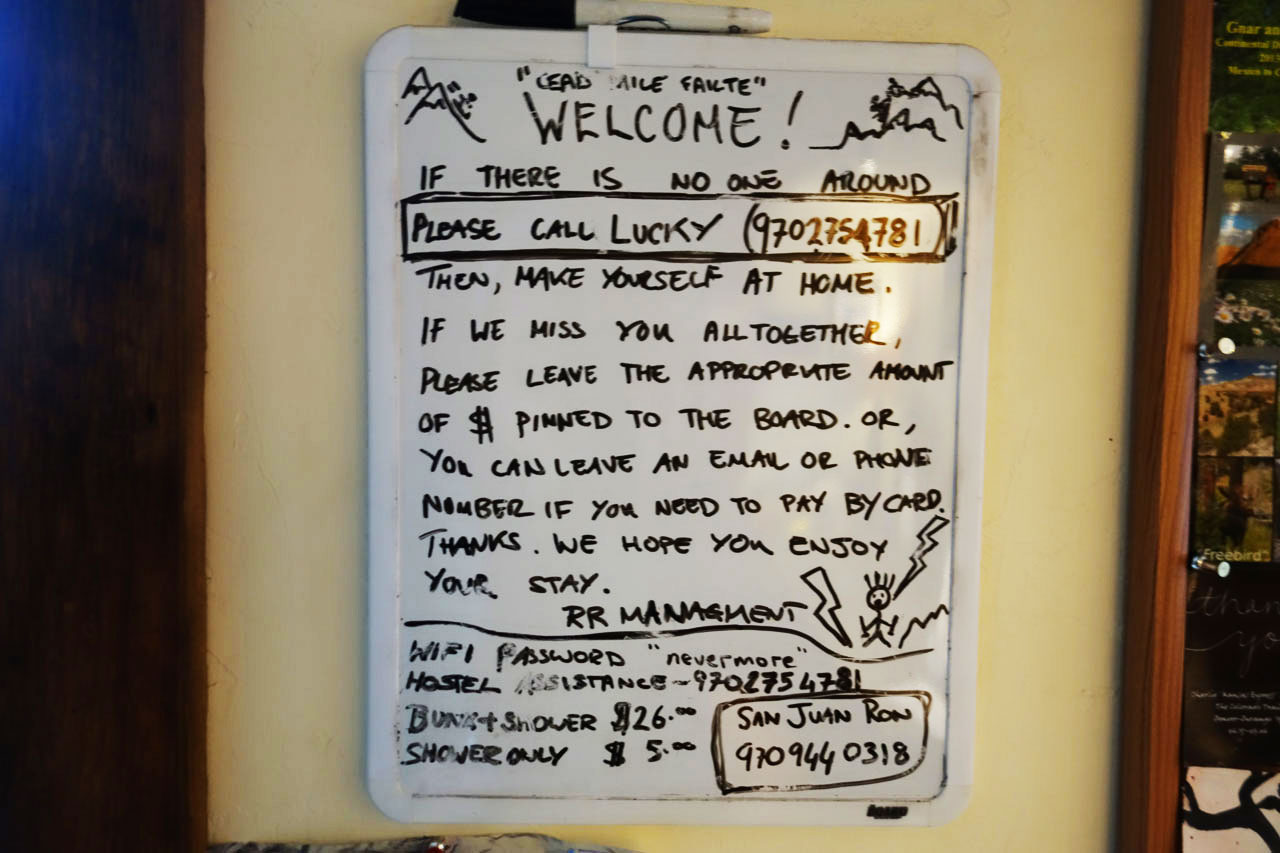 "CEAD MILE FAILTE"
WELCOME!
IF THERE IS NO ONE AROUND
PLEASE CALL LUCKY (9702754781)!
THEN, MAKE YOURSELF AT HOME.
IF WE MISS YOU ALLTOGETHER,
PLEASE LEAVE THE APPROPRIATE AMOUNT
OF $ PINNED TO THE BOARD. OR,
YOU CAN LEAVE AN EMAIL OR PHONE
NUMBER IF YOU NEED TO PAY BY CARD.
THANKS. WE HOPE YOU ENJOY
YOUR STAY.
RR MANAGMENT
WIFI PASSWORD "nevermore"
HOSTEL ASSISTANCE-9702754781
BUNK+SHOWER $26.00
SHOWER ONLY $ 5.00
SAN JUAN RON
970 944 0318
Gnar an
Continental D
201
Mexico to C
"Freebird"
than
yo